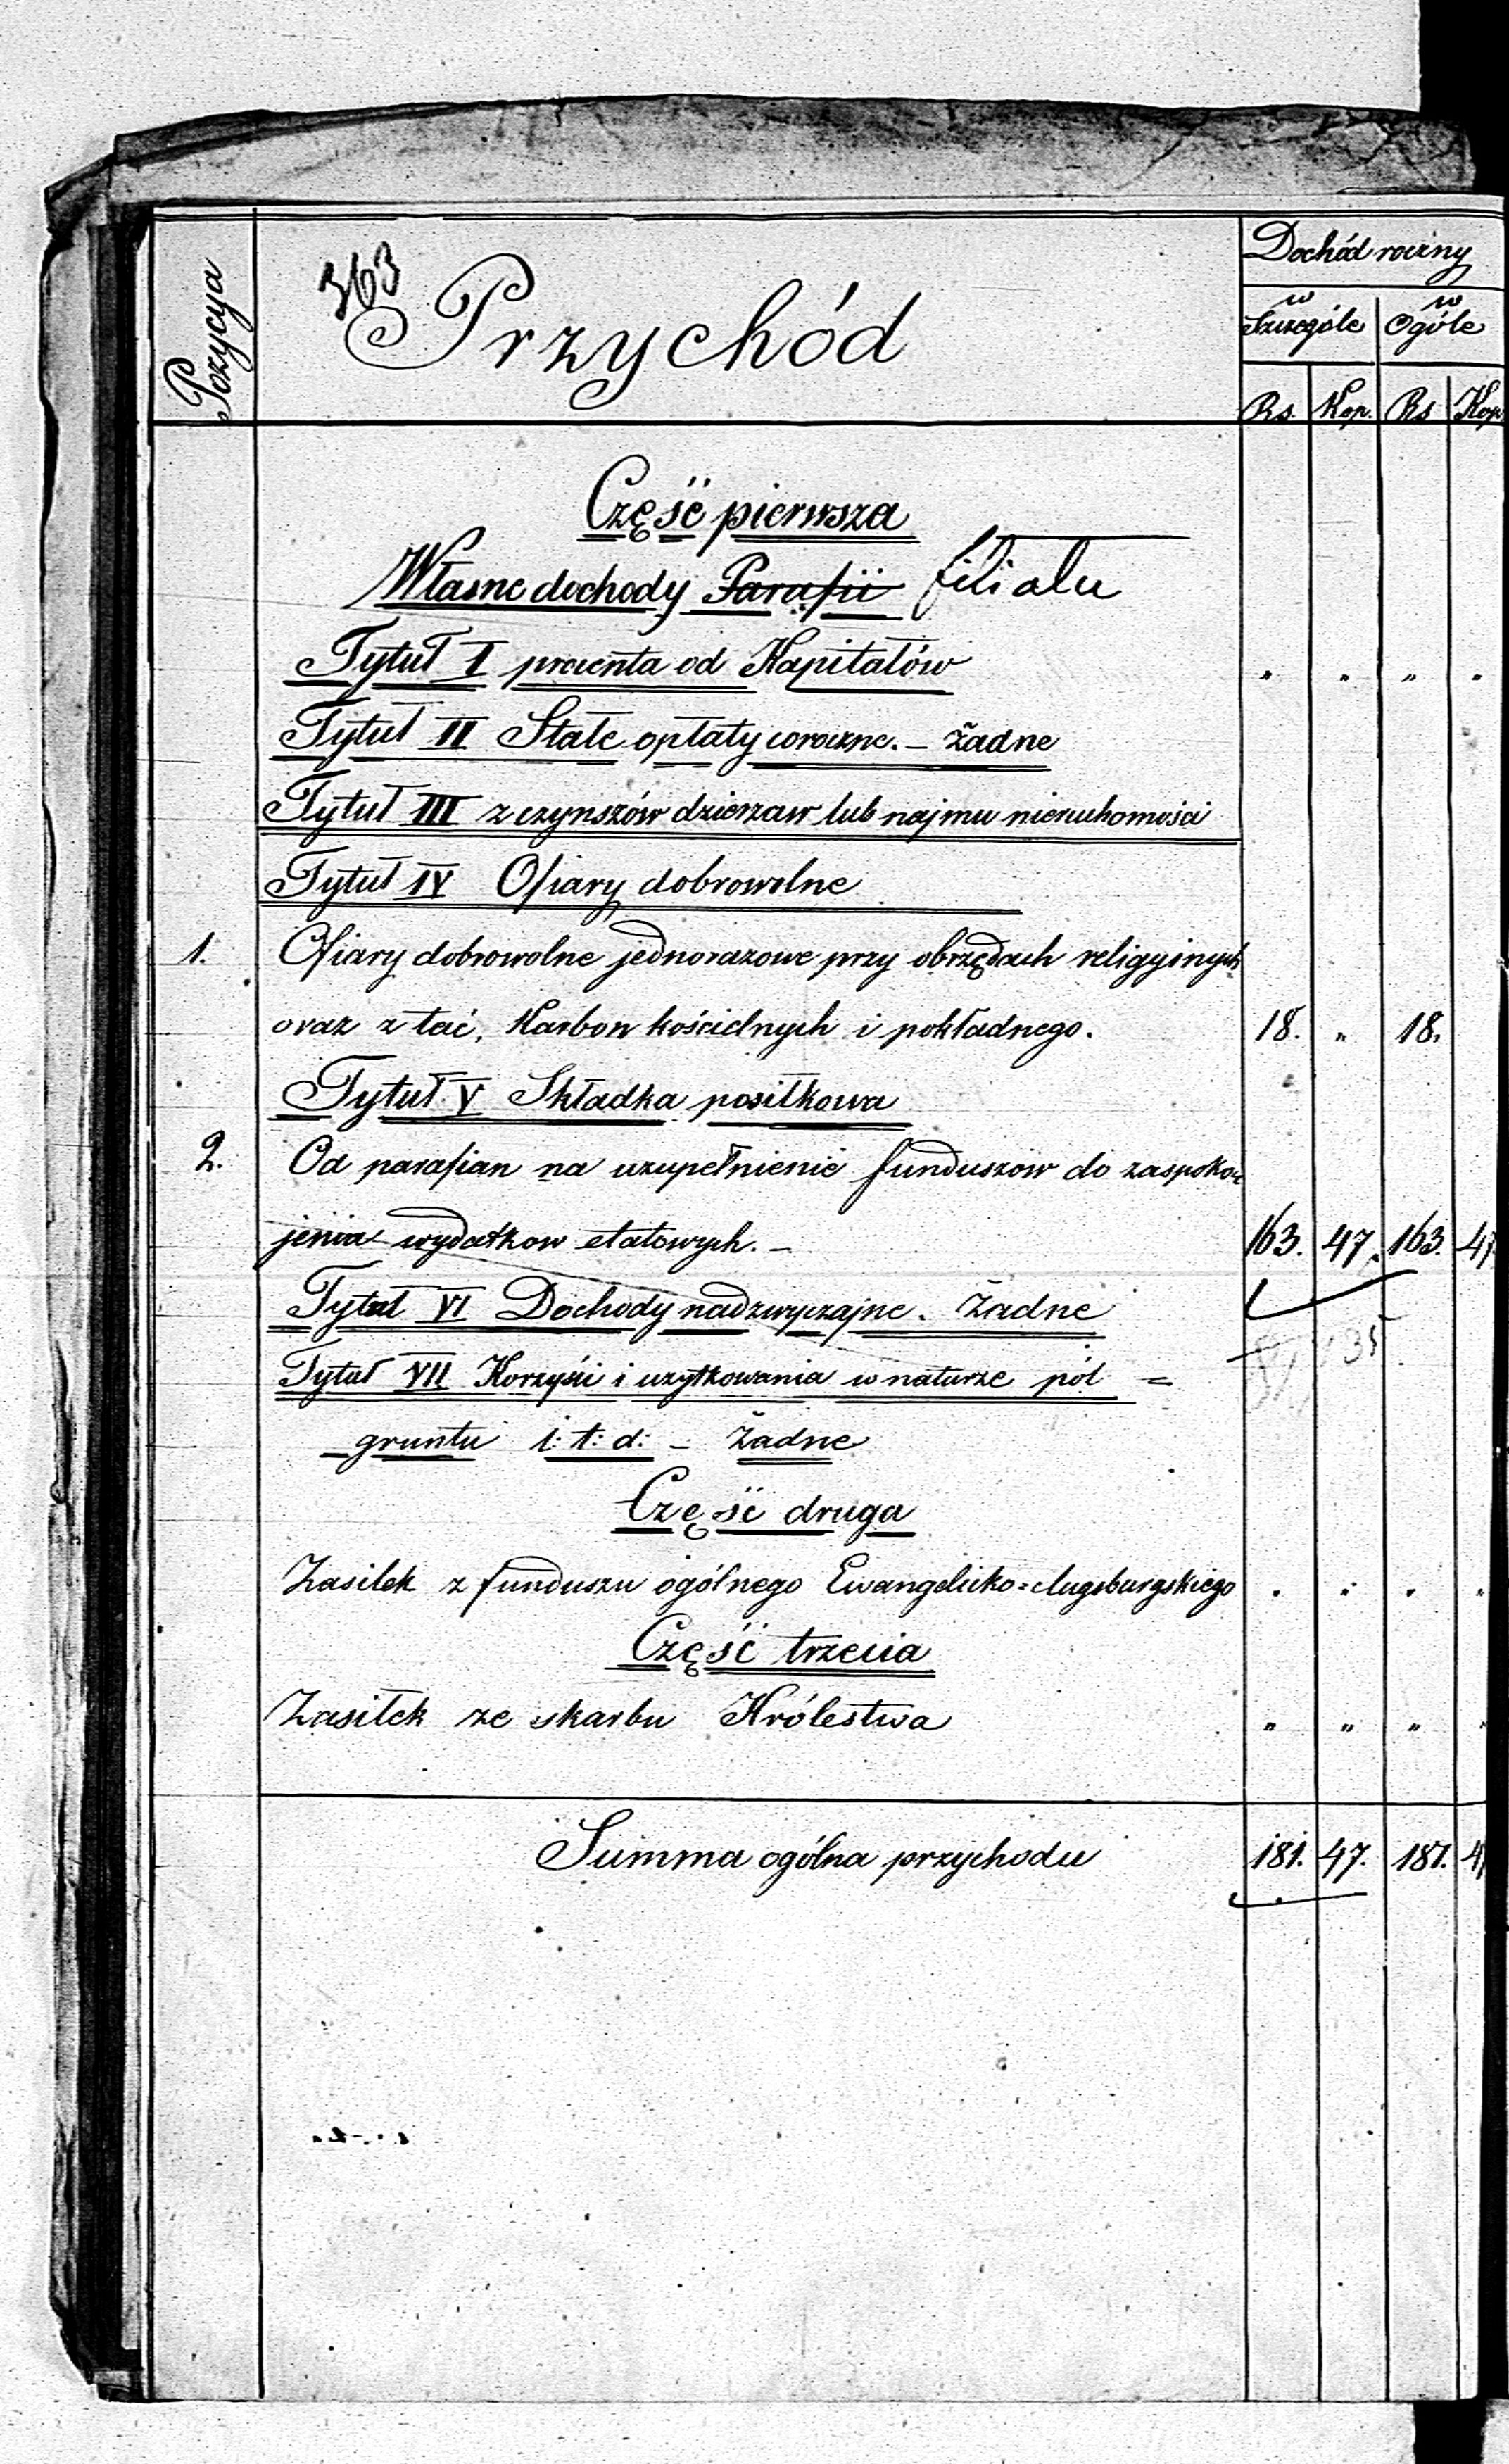 363
Pozycya
Przychód
Dochód roczny
w Szczególe
w Ogóle
Rs. Kop. Rs Kop
Część pierwsza
Własne dochody Parafii filiału
Tytuł I procenta od Kapitałów " " " "
Tytuł II Stałe opłaty coroczne. – Żadne
Tytuł III z czynszów dzierzaw lub najmu nieruchomości
Tytuł IV Ofiary dobrowolne
1. Ofiary dobrowolne jednorazowe przy obrzędach religyinych
oraz z tac, Karbon kościelnych i pokładnego. 18. " 18.
Tytuł V Składka posiłkowa
2. Od parafian na uzupełnienie funduszow do zaspoko-
jenia wydatkow etatowych. – 163. 47. 163. 47
Tytuł VI Dochody nadzwyczajne. Żadne
Tytuł VII Korzyści i uzytkowania w naturze pól =
gruntu i: t: d: – Żadne
Część druga
Zasilek z funduszu ogólnego Ewangelicko=Augsburgskiego " " " "
Część trzecia
Zasiłek ze skarbu Królestwa " " " "
Summa ogólna przychodu 181. 47. 181. 47